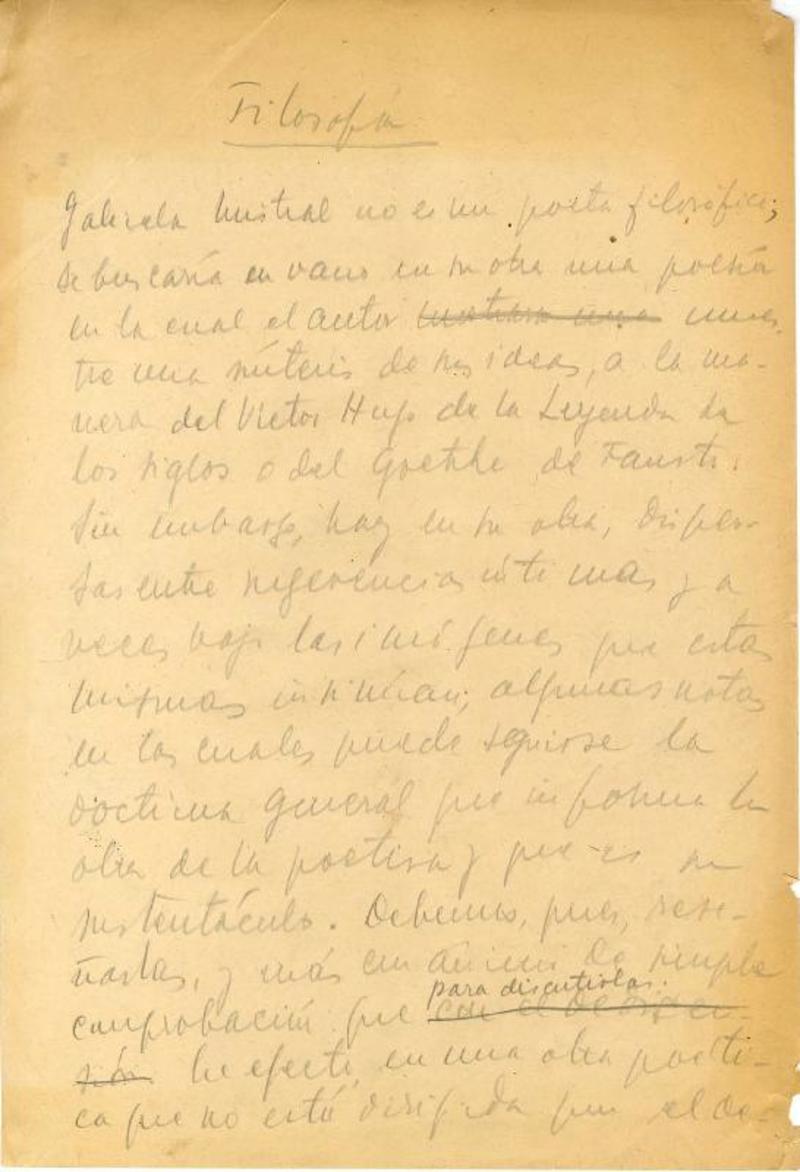 Filosofía
Gabriela Mistral no es un poeta filosófico;
se buscaría en vano en su obra una poesía
en la cual el autor mostrara una mues-
tre una síntesis de sus ideas, a la ma-
nera del Victor Hugo de la Leyenda de
los siglos o del Goethe de Fausto.
Sin embargo, hay en su obra, disper-
sas entre sugerencias íntimas y a
veces bajo las imágenes que estas
mismas insinúan, algunas notas
en las cuales puede seguirse la
doctrina general que informa la
obra de la poetisa y que es su
sustentáculo. Debemos, pues, rese-
ñarlas, y más con ánimo de simple
para discutirlas.
comprobación que con el de discu-
sión. En efecto, en una obra poéti-
ca que no está dirigida por el de-